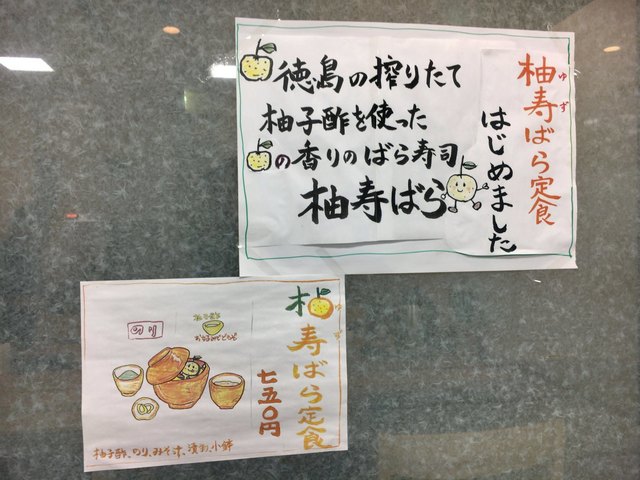 柚寿ばら定食
ゆず
はじめました
徳島の搾りたて
柚子酢を使った
の香りのばら寿司
柚寿ばら
柚寿ばら定食
ゆず
七五〇円
柚子酢
のり
柚子酢、のり、みそ汁、漬物、小鉢